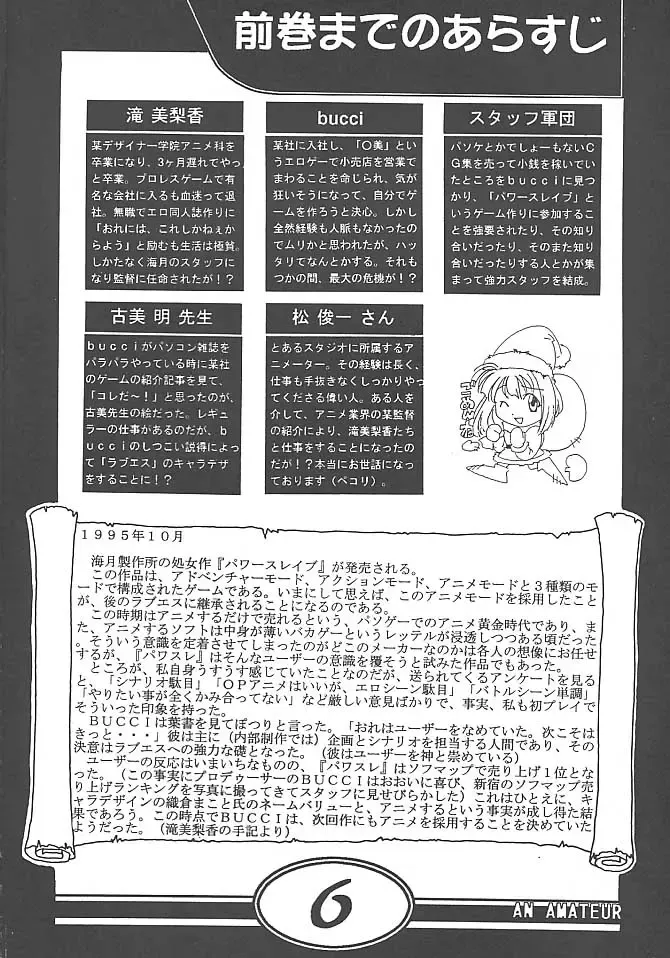 前巻までのあらすじ
滝 美梨香
某デザイナー学院アニメ科を
卒業になり、3ヶ月遅れてやっ
と卒業。プロレスゲームで有
名な会社に入るも血迷って退
社。無職でエロ同人誌作りに
「おれには、これしかねぇか
らよう」と励むも生活は極貧。
しかたなく海月のスタッフに
なり監督に任命されたが！？
bucci
某社に入社し、「〇美」とい
うエロゲーで小売店を営業で
まわることを命じられ、気が
狂いそうになって、自分でゲ
ームを作ろうと決心。しかし
全然経験も人脈もなかったの
でムリかと思われたが、ハッ
タリでなんとかする。それも
つかの間、最大の危機が！？
スタッフ軍団
パソケとかでしょーもないC
G集を売って小銭を稼いでい
たところをbucciに見つ
かり、「パワースレイブ」と
いうゲーム作りに参加するこ
とを強要されたり、その知り
合いだったり、そのまた知り
合いだったりする人とかが集
まって強力スタッフを結成。
古美 明 先生
bucciがパソコン雑誌を
パラパラやっている時に某社
のゲームの紹介記事を見て、
「コレだ～！」と思ったのが、
古美先生の絵だった。レギュ
ラーの仕事があるのだが、b
ucciのしつこい説得によっ
て「ラブエス」のキャラデザ
をすることに！？
松 俊一 さん
とあるスタジオに所属するア
ニメーター。その経験は長く、
仕事も手抜きなくしっかりやっ
てくださる偉い人。ある人を
介して、アニメ業界の某監督
の紹介により、滝美梨香たち
と仕事をすることになったの
だが！？本当にお世話になっ
ております（ペコリ）。
1995年10月
海月製作所の処女作『パワースレイブ』が発売される。
この作品は、アドベンチャーモード、アクションモード、アニメモードと3種類のモ
ードで構成されたゲームである。いまにして思えば、このアニメモードを採用したこと
が、後のラブエスに継承されることになるのである。
この時期はアニメするだけで売れるという、パソゲーでのアニメ黄金時代であり、ま
た、アニメするソフトは中身が薄いバカゲーというレッテルが浸透しつつある頃だった
。そういう意識を定着させてしまったのがどこのメーカーなのかは各人の想像にお任せ
するが、『パワスレ』はそんなユーザーの意識を覆そうと試みた作品でもあった。
ところが、私自身うすうす感じていたことなのだが、送られてくるアンケートを見る
と、「シナリオ駄目」「OPアニメはいいが、エロシーン駄目」「バトルシーン単調」
「やりたい事が全くかみ合ってない」など厳しい意見ばかりで、事実、私も初プレイで
そういった印象を持った。
BUCCIは葉書を見てぽつりと言った。「おれはユーザーをなめていた。次こそは
きっと・・・」彼は主に（内部制作では）企画とシナリオを担当する人間であり、その
決意はラブエスへの強力な礎となった。（彼はユーザーを神と崇めている）
ユーザーの反応はいまいちなものの、『パワスレ』はソフマップで売り上げ1位とな
った。（この事実にプロデゥーサーのBUCCIはおおいに喜び、新宿のソフマップ売
り上げランキングを写真に撮ってきてスタッフに見せびらかした）これはひとえに、キ
ャラデザインの織倉まこと氏のネームバリューと、アニメするという事実が成し得た結
果であろう。この時点でBUCCIは、次回作にもアニメを採用することを決めていた
ようだった。（滝美梨香の手記より）
6
AN AMATEUR